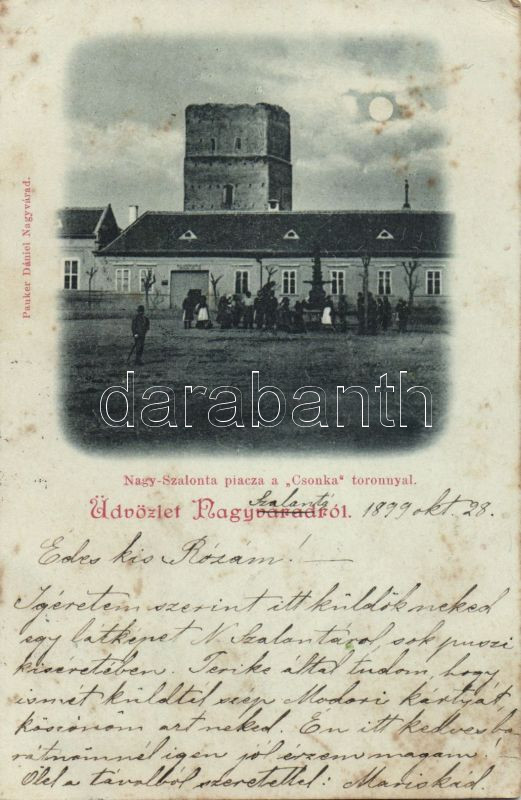 Pauker Dániel Nagyvárad.
darabanth
Nagy-Szalonta piacza a „Csonka" toronnyal.
Szalontá
Üdvözlet Nagyváradról. 1899 okt. 28.
Edes kis Rózám! —
Igéretem szerint itt küldök neked
egy latképet N. Szalontáról sok puszi
kiseretében. Terike által tudom, hogy
ismét küldtel szép Modori kártyát,
köszönöm azt neked. Én itt kedves ba-
rátnőmnél igen jól érzem magam! –
Ölel a távolból szeretettel: Mariskád.